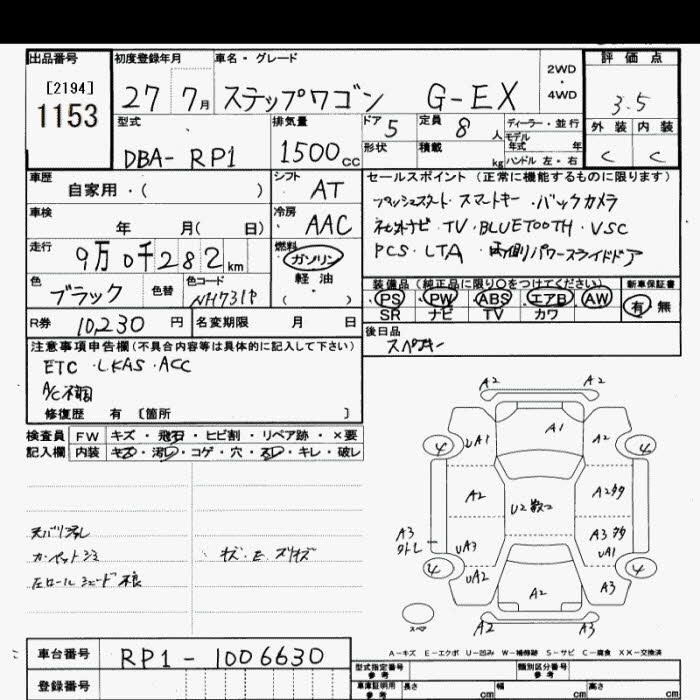 出品番号 初度登録年月 車名・グレード 評価点
[2194] 2WD
1153 27 7月 ステップワゴン G-EX ・ 3.5
4WD
型式 排気量 ドア 5 定員 8人 ディーラー・並行 外装 内装
DBA- RP1 1500cc 形状 積載 kg モデル年式 年 C C
ハンドル 左・右
車歴 シフト セールスポイント (正常に機能するものに限ります)
自家用・( ) AT プッシュスタート スマートキー・バックカメラ
車検 冷房 ナビ・TV・BLUETOOTH・VSC
年 月( 日) AAC PCS・LTA・両側パワースライドドア
走行 燃料
9万0千282km ガソリン
軽油 装備品 (純正品に限り○をつけてください) 新車保証書
色 色替 色コード ( ) ・PS・PW・ABS・エアB・AW 有・無
ブラック NH731P SR ナビ TV カワ
R券 10,230 円 名変期限 月 日 後日品
スペアキー
注意事項申告欄(不具合内容等は具体的に記入して下さい)
ETC ・LKAS・ACC
A/C不調
修復歴 有 [箇所 ]
検査員 FW キズ・飛石・ヒビ割・リペア跡・×要
記入欄 内装 キズ・汚レ・コゲ・穴・スレ・キレ・破レ
A2 A2
4 UA1 A1 A2 4
A2 U2 A2
A3 UA3 A3
UA1
4 UA2 A2 A3 4
カーペットシミ
左ロールシェード不良
スペア A2 A3
A-キズ E-エクボ U-凹み W-補修跡 S-サビ C-腐食 XX-交換済
車台番号 RP1-1006630
型式指定番号 参考 類別区分番号 参考
登録番号 車庫証明用 参考 長さ cm 幅 cm 高さ cm